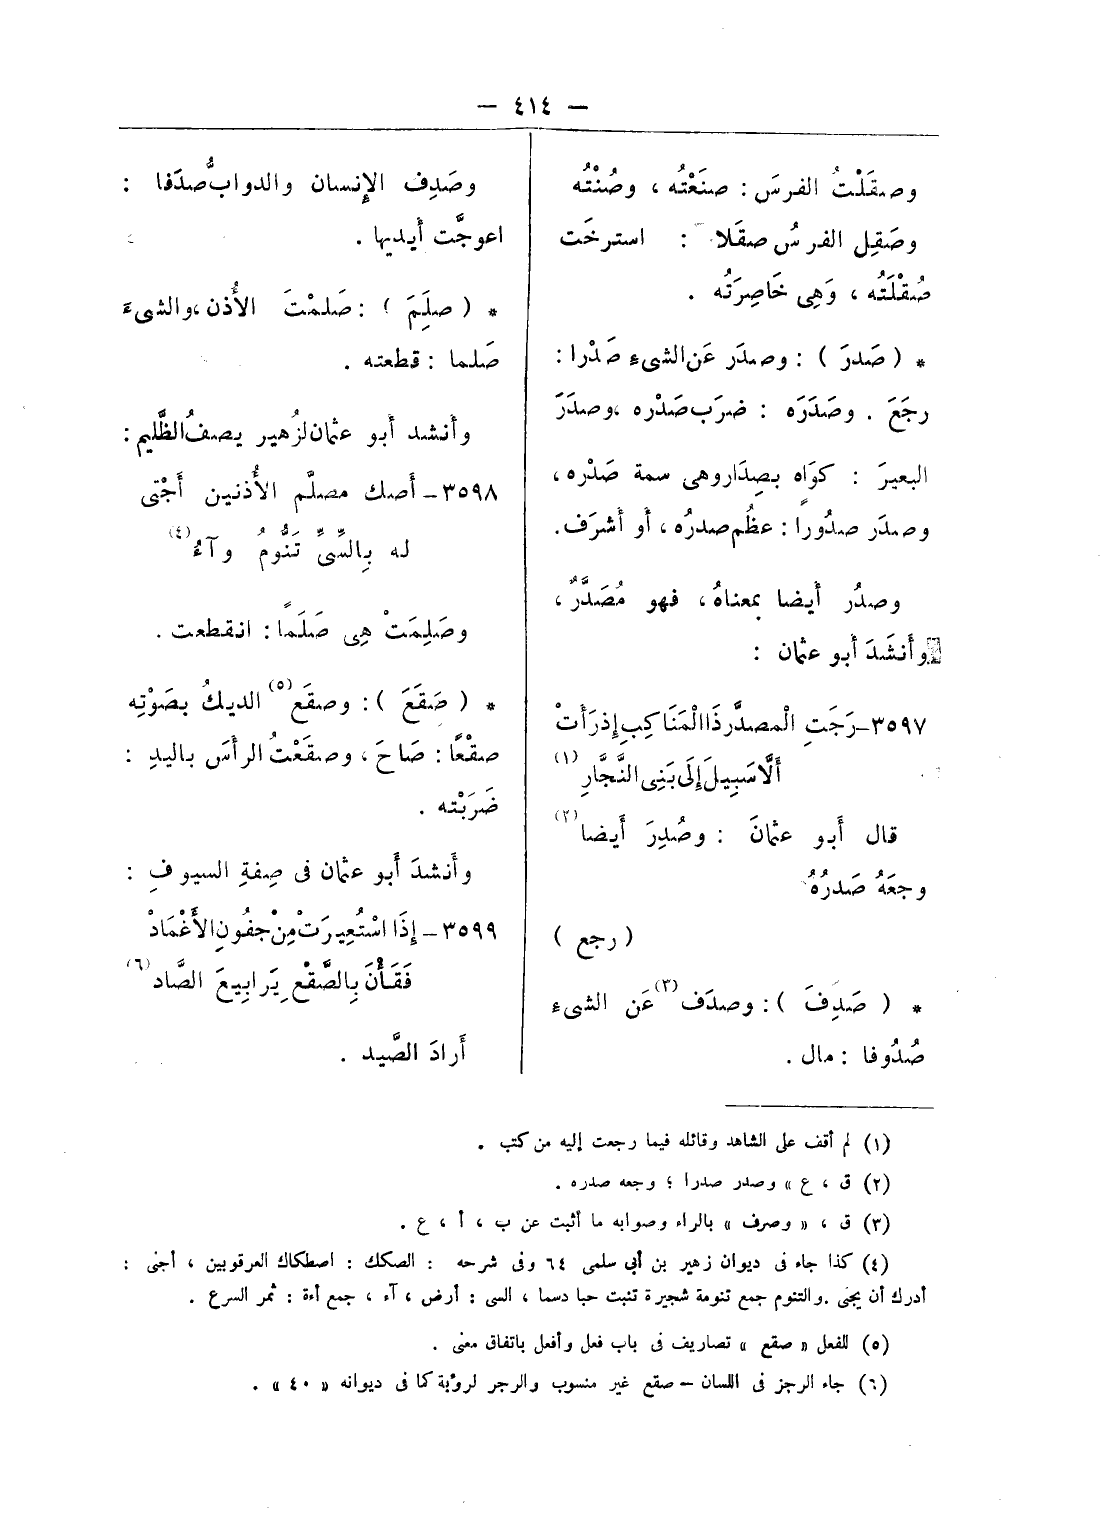 — ٤١٤ —
وصقَلْتُ الفرسَ : صنَعْتُه ، وصُنْتُه
وصَقِل الفرسُ صقَلا : استرخَت
صُقْلَتُه ، وَهِى خَاصِرَتُه .
* ( صَدرَ ) : وصدَر عَن الشىء صَدْرا :
رجَعَ . وصَدَرَه : ضرَب صَدْره ، وصدَرَ
البعيرَ : كوَاه بصِدَار وهى سمة صَدْره ،
وصدَر صدُوراً : عظُم صدرُه ، أو أشرَف .
وصدُر أيضا بمعناهُ ، فهو مُصَدَّرٌ ،
وأنشَدَ أبو عثمان :
٣٥٩٧ – رَجَتِ الْمصدَّر ذَا الْمَنَاكِبِ إِذ رَأتْ
أَلَّا سَبِيلَ إِلَى بَنِى النَّجَّارِ (١)
قال أَبو عثمانَ : وصُدِرَ أيضا (٢)
وجعَهُ صَدرُهُ
( رجع )
* ( صَدفَ ) : وصدَف (٣) عَن الشىء
صُدُوفا : مال .
وصَدِف الإِنسان والدوابُّ صدَفا :
اعوجَّت أَيديها .
* ( صلَمَ ) : صَلمْتَ الأُذن ، والشىءَ
صَلما : قطعته .
وأنشد أبو عثمان لزُهير يصفُ الظَّليم :
٣٥٩٨ – أَصك مصلَّم الأُذنين أَجْنى
له بِالسِّىِّ تَنُّومُ وآءُ (٤)
وصَلِمَتْ هِى صَلَماً : انقطعت .
* ( صَقَعَ ) : وصقَع (٥) الديكُ بصَوْتِه
صقْعًا : صَاحَ ، وصقَعْتُ الرأسَ باليدِ :
ضَرَبْته .
وأَنشدَ أَبو عثمان فى صِفةِ السيوفِ :
٣٥٩٩ – إِذَا اسْتُعِيرَتْ مِنْ جفُونِ الأَغْمَادْ
فَقَأْنَ بِالصَّقْعِ يَرابِيعَ الصَّاد (٦)
أَرادَ الصَّيد .
(١) لم أقف على الشاهد وقائله فيما رجعت إليه من كتب .
(٢) ق ، ع « وصدر صدرا ؛ وجعه صدره .
(٣) ق ، « وصرف » بالراء وصوابه ما أثبت عن ب ، أ ، ع .
(٤) كذا جاء فى ديوان زهير بن أبي سلمى ٦٤ وفى شرحه : الصكك : اصطكاك العرقوبين ، أجنى :
أدرك أن يجنى . والتنوم جمع تنومة شجيرة تنبت حبا دسما ، السى : أرض ، آء ، جمع أءة : ثمر السرع .
(٥) للفعل « صقع » تصاريف فى باب فعل وأفعل باتفاق معنى .
(٦) جاء الرجز فى اللسان – صقع غير منسوب والرجز لرؤبة كما فى ديوانه « ٤٠ » .